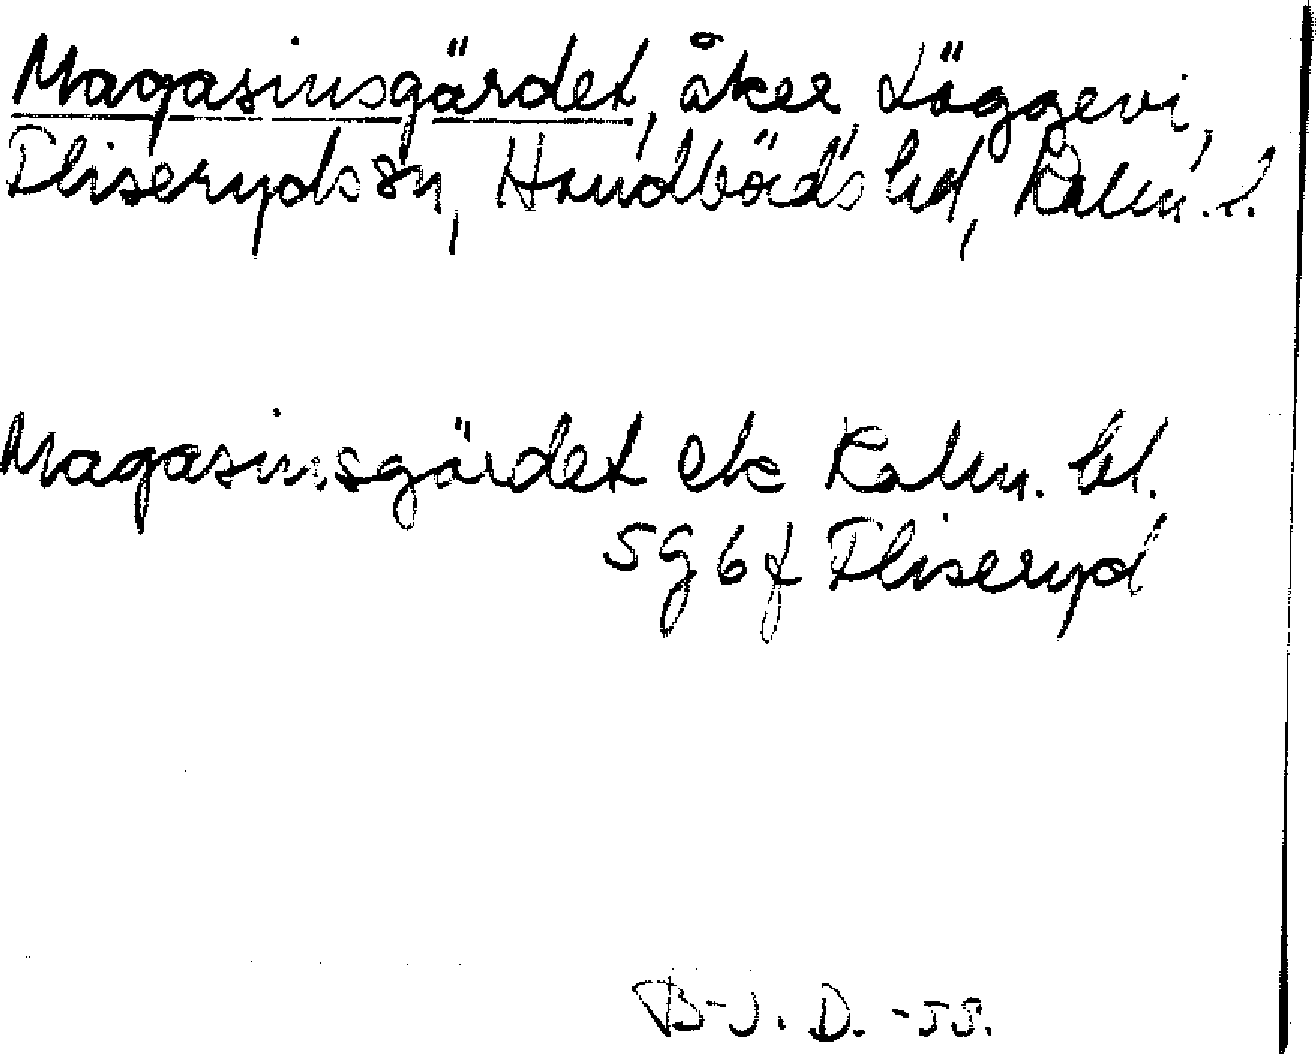 Magasinsgärdet, åker Läggevi,
Fliseryds sn, Handbörds hd, Kalm. l.
Magasinsgärdet ek Kalm. bl.
5g6f Fliseryd
B-J. D. -55.